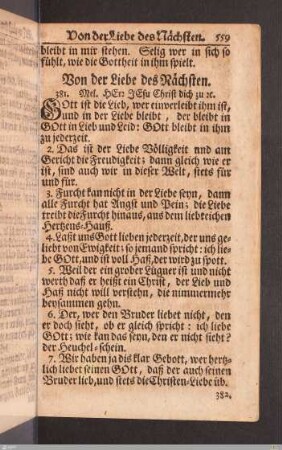 Von der Liebe des Nächsten. 559
bleibt in mir stehen. Selig wer in sich so
fühlt, wie die Gottheit in ihm spielt.
Von der Liebe des Nächsten.
381. Mel. HErr JEsu Christ dich zu ꝛc.
GOtt ist die Lieb, wer einverleibt ihm ist,
und in der Liebe bleibt, der bleibt in
GOtt in Lieb und Leid: GOtt bleibt in ihm
zu jederzeit.
2. Das ist der Liebe Völligkeit und am
Gericht die Freudigkeit; dann gleich wie er
ist, sind auch wir in dieser Welt, stets für
und für.
3. Furcht kan nicht in der Liebe seyn, dann
alle Furcht hat Angst und Pein; die Liebe
treibt die Furcht hinaus, aus dem liebreichen
Hertzens-Hauß.
4. Laßt uns Gott lieben jederzeit, der uns ge-
liebt von Ewigkeit: so jemand spricht: ich lie-
be GOtt, und ist voll Haß, der wird zu spott.
5. Weil der ein grober Lügner ist und nicht
werth daß er heißt ein Christ, der Lieb und
Haß nicht will verstehn, die nimmermehr
beysammen gehn.
6. Der, wer den Bruder liebet nicht, den
er doch sieht, ob er gleich spricht: ich liebe
GOtt; wie kan das seyn, den er nicht sieht?
der Heuchel-schein.
7. Wir haben ja dis klar Gebott, wer hertz-
lich liebet seinen GOtt, daß der auch seinen
Bruder lieb, und stets die Christen-Liebe üb.
382.